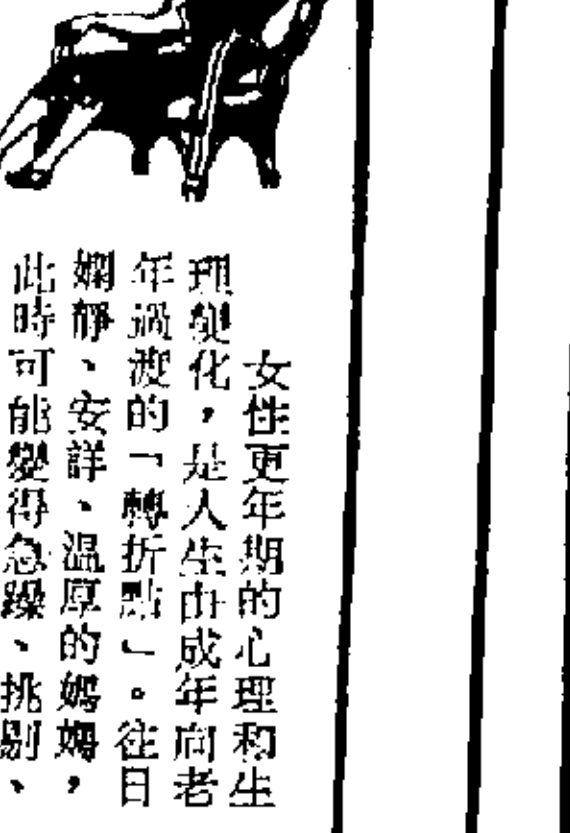 女性更年期的心理和生
理變化，是人生由成年向老
年過渡的「轉折點」。往日
嫻靜、安詳、溫厚的媽媽，
此時可能變得急躁、挑剔、